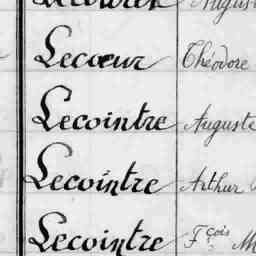 Lecoeur Théodore
Lecointre Auguste
Lecointre Arthur
Lecointre Fçois M